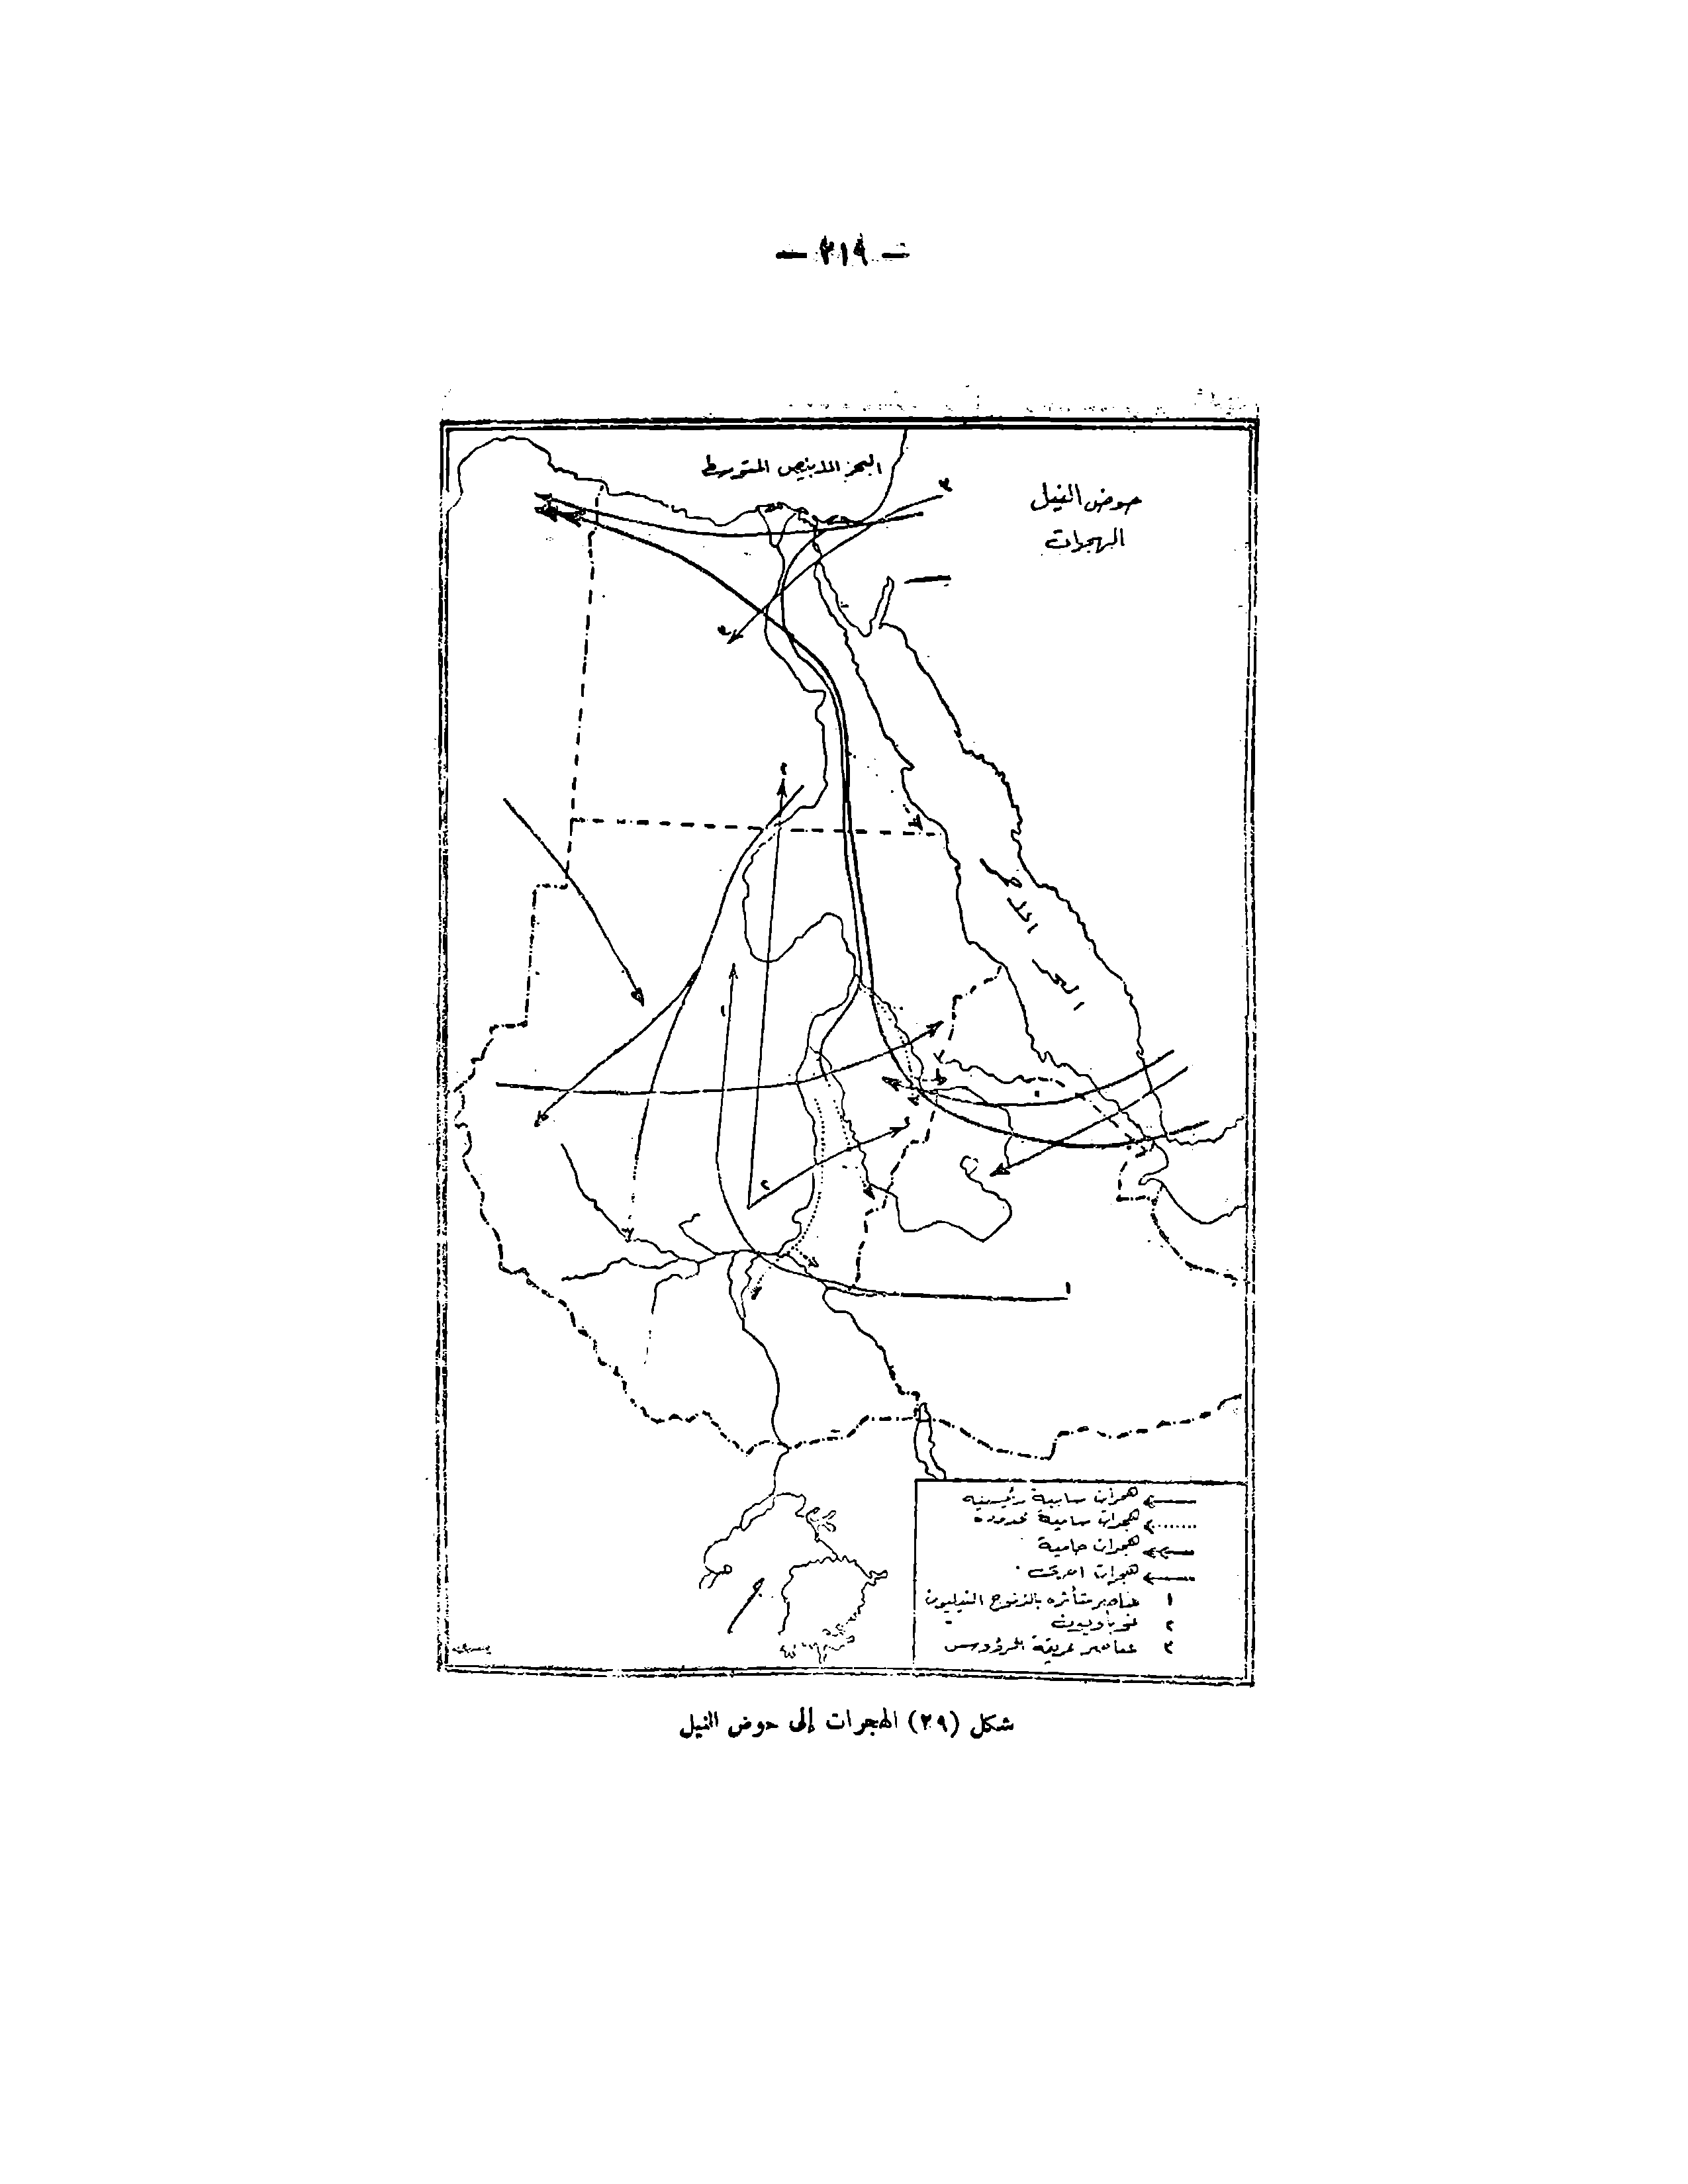 — ٢١٩ —
البحر الابيض المتوسط
حوض النيل
الهجرات
٣
٣
٢
البحر الاحمر
١
١
٢
٢
١
هجرات سامية رئيسيه
هجرات سامية محدودة
هجرات حامية
هجرات اخرى
١ عناصر متأثره بالزنوج النيليون
٢ نوباويون
٣ عناصر عريضة الرؤوس
شكل (٢٩) الهجرات إلى حوض النيل